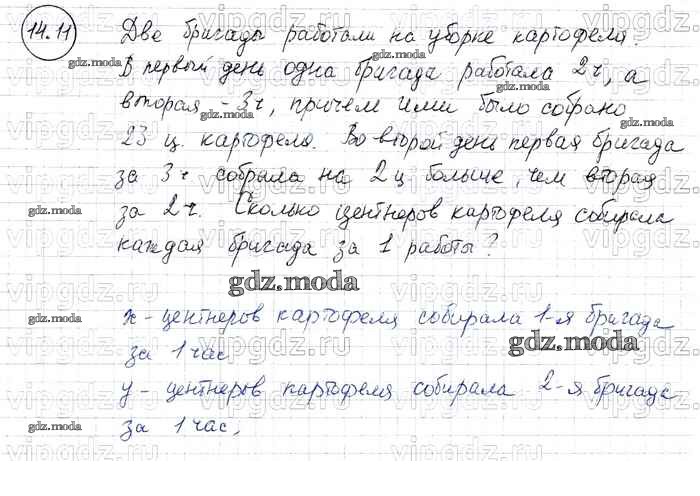 14.11 Две бригады работали на уборке картофеля.
В первый день одна бригада работала 2ч, а
вторая - 3ч, причем ими было собрано
23 ц. картофеля. Во второй день первая бригада
за 3ч собрала на 2ц больше, чем вторая
за 2ч. Сколько центнеров картофеля собирала
каждая бригада за 1 работы?
gdz.moda
x - центнеров картофеля собирала 1-я бригада
за 1 час
y - центнеров картофеля собирала 2-я бригада
за 1 час,